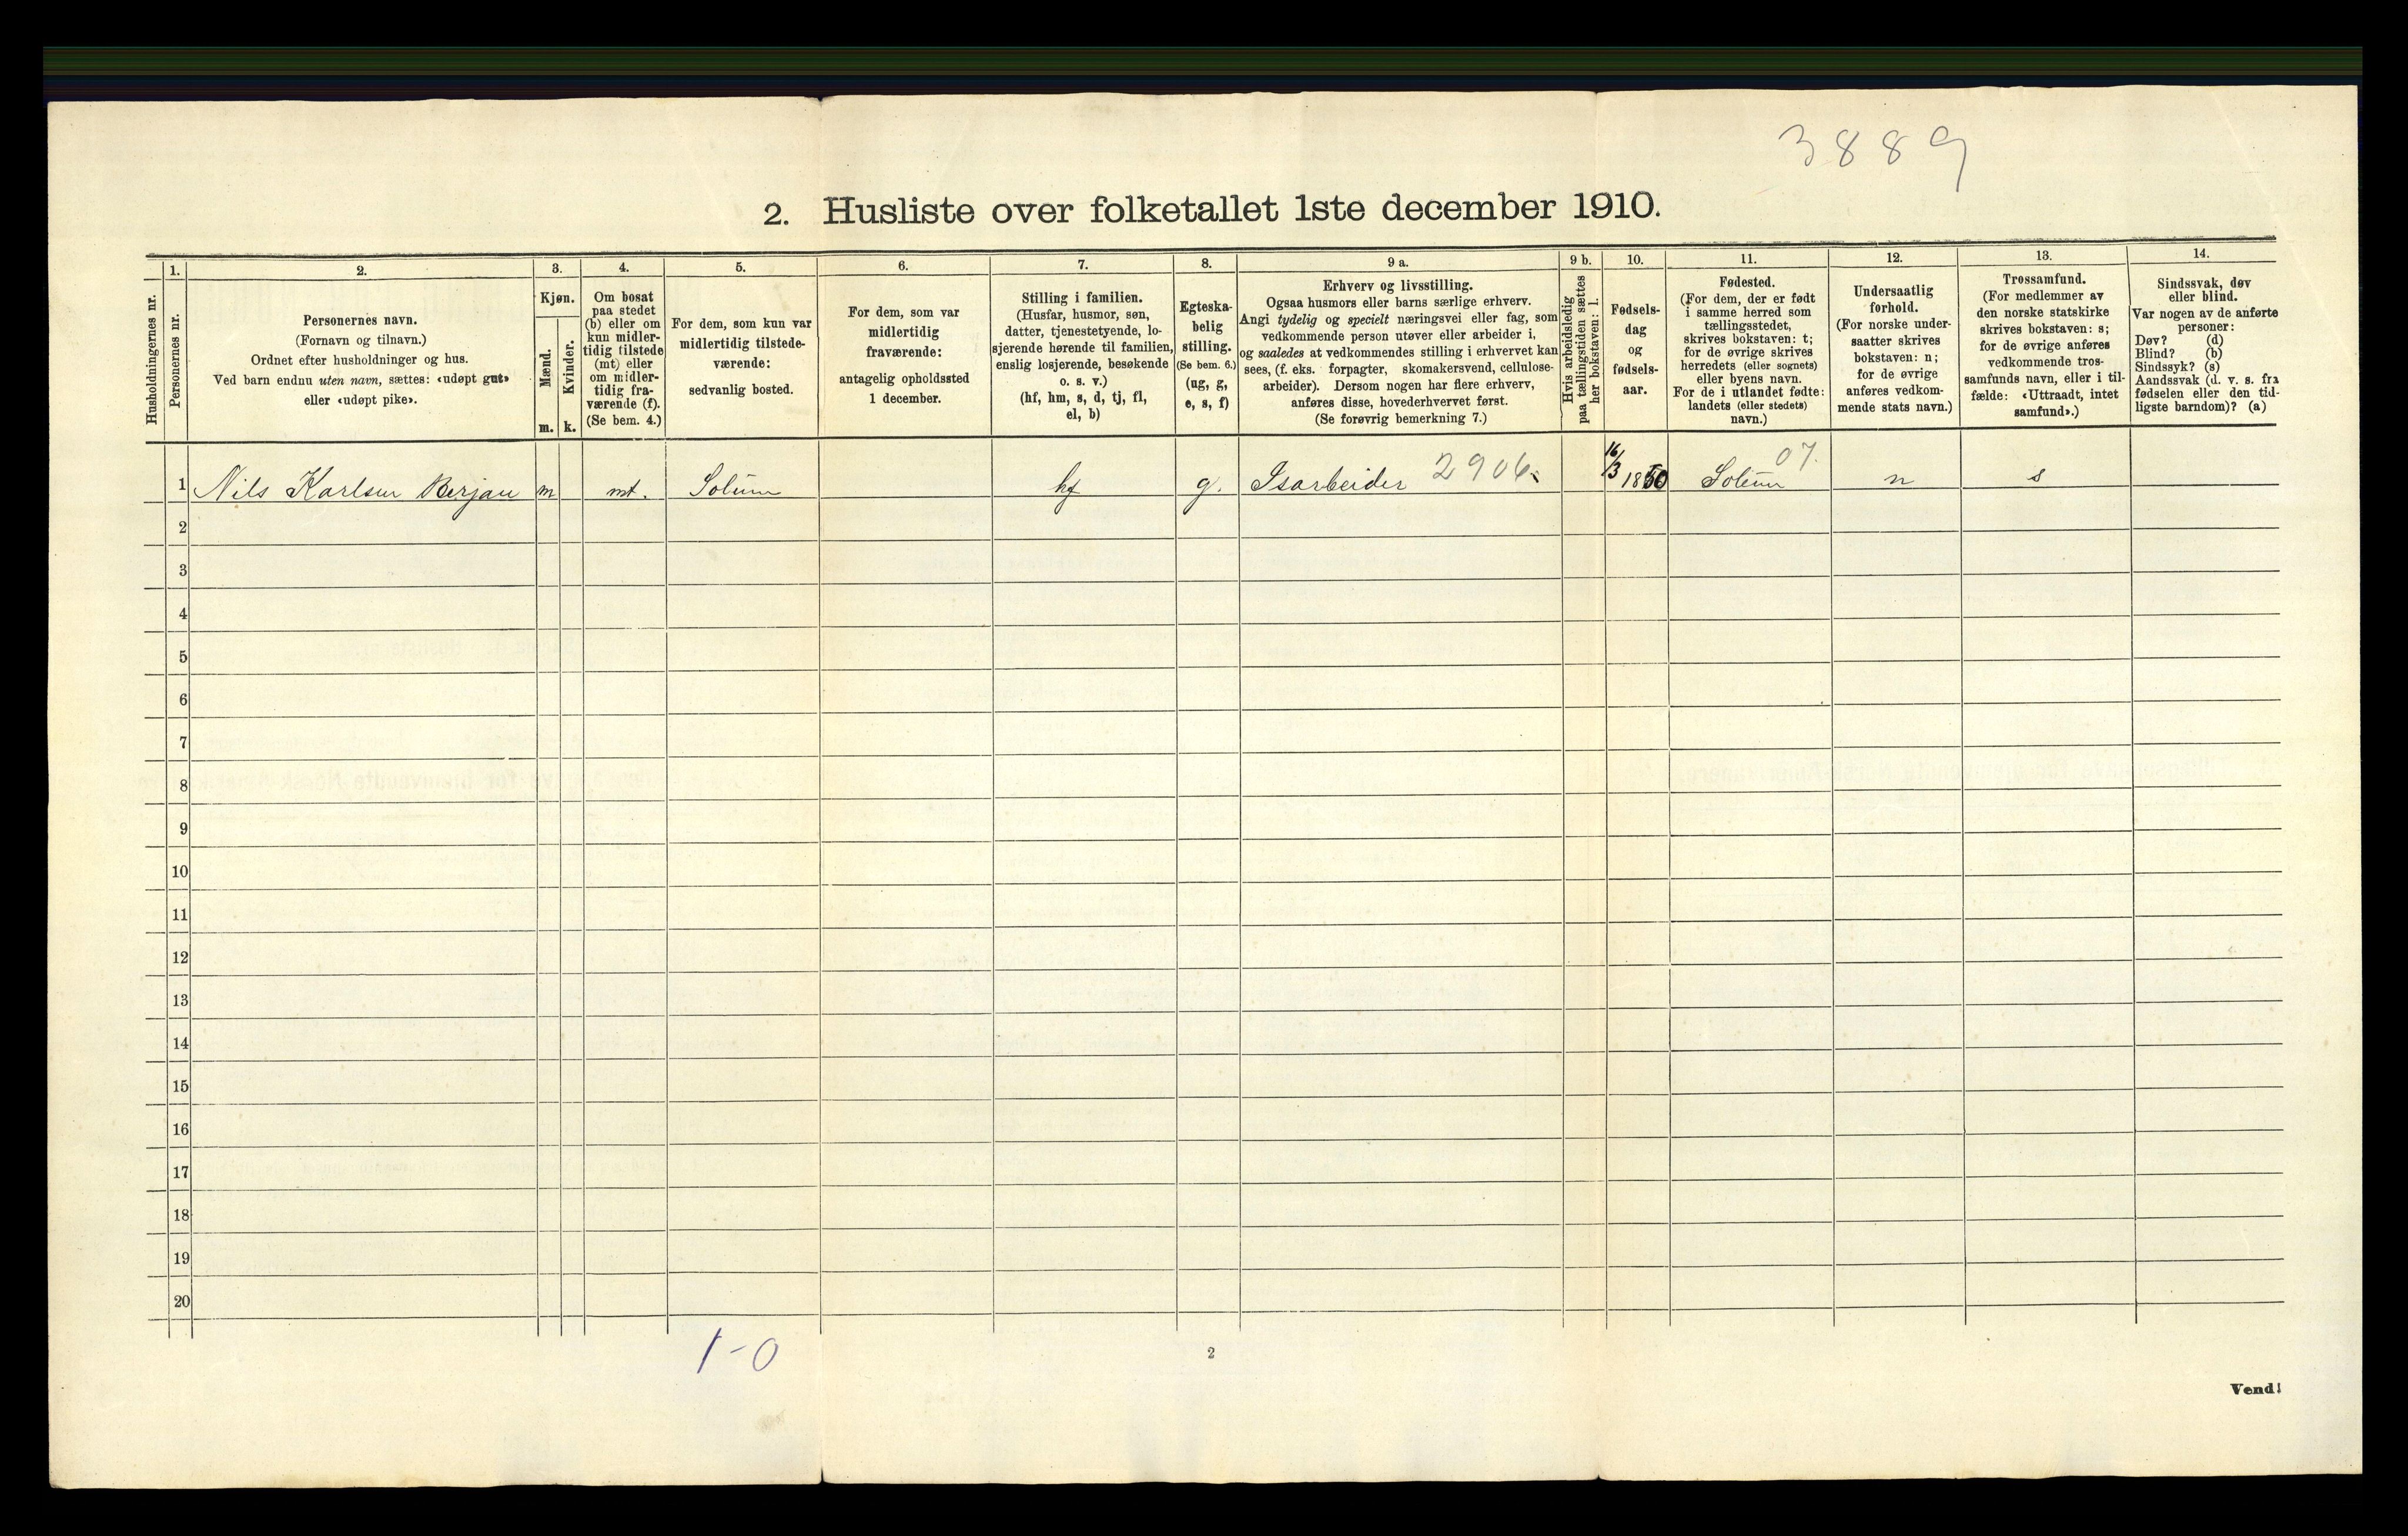 3889
2. Husliste over folketallet 1ste december 1910.
Husholdningernes nr.
1.
Personernes nr.
2.
Personernes navn.
(Fornavn og tilnavn.)
Ordnet efter husholdninger og hus.
Ved barn endnu uten navn, sættes: «udøpt gut»
eller «udøpt pike».
3.
Kjøn.
Mænd.
Kvinder.
m. k.
4.
Om bosat
paa stedet
(b) eller om
kun midler-
tidig tilstede
(mt) eller
om midler-
tidig fra-
værende (f).
(Se bem. 4.)
5.
For dem, som kun var
midlertidig tilstede-
værende:
sedvanlig bosted.
6.
For dem, som var
midlertidig
fraværende:
antagelig opholdssted
1 december.
7.
Stilling i familien.
(Husfar, husmor, søn,
datter, tjenestetyende, lo-
sjerende hørende til familien,
enslig losjerende, besøkende
o. s. v.)
(hf, hm, s, d, tj, fl,
el, b)
8.
Egteska-
belig
stilling.
(Se bem. 6.)
(ug, g,
e, s, f)
9 a.
Erhverv og livsstilling.
Ogsaa husmors eller barns særlige erhverv.
Angi tydelig og specielt næringsvei eller fag, som
vedkommende person utøver eller arbeider i,
og saaledes at vedkommendes stilling i erhvervet kan
sees, (f. eks. forpagter, skomakersvend, cellulose-
arbeider). Dersom nogen har flere erhverv,
anføres disse, hovederhvervet først.
(Se forøvrig bemerkning 7.)
9 b.
Hvis arbeidsledig
paa tællingstiden sættes
her bokstaven: l.
10.
Fødsels-
dag
og
fødsels-
aar.
11.
Fødested.
(For dem, der er født
i samme herred som
tællingsstedet,
skrives bokstaven: t;
for de øvrige skrives
herredets (eller sognets)
eller byens navn.
For de i utlandet fødte:
landets (eller stedets)
navn.)
12.
Undersaatlig
forhold.
(For norske under-
saatter skrives
bokstaven: n;
for de øvrige
anføres vedkom-
mende stats navn.)
13.
Trossamfund.
(For medlemmer av
den norske statskirke
skrives bokstaven: s;
for de øvrige anføres
vedkommende tros-
samfunds navn, eller i til-
fælde: «Uttraadt, intet
samfund».)
14.
Sindssvak, døv
eller blind.
Var nogen av de anførte
personer:
Døv? (d)
Blind? (b)
Sindssyk? (s)
Aandssvak (d. v. s. fra
fødselen eller den tid-
ligste barndom)? (a)
1 Nils Karlsen Berjan m mt. Solum hf g. Isarbeider 2906. 16/3 1850 Solum 07. n s
2
3
4
5
6
7
8
9
10
11
12
13
14
15
16
17
18
19
20
1-0
2
Vend!